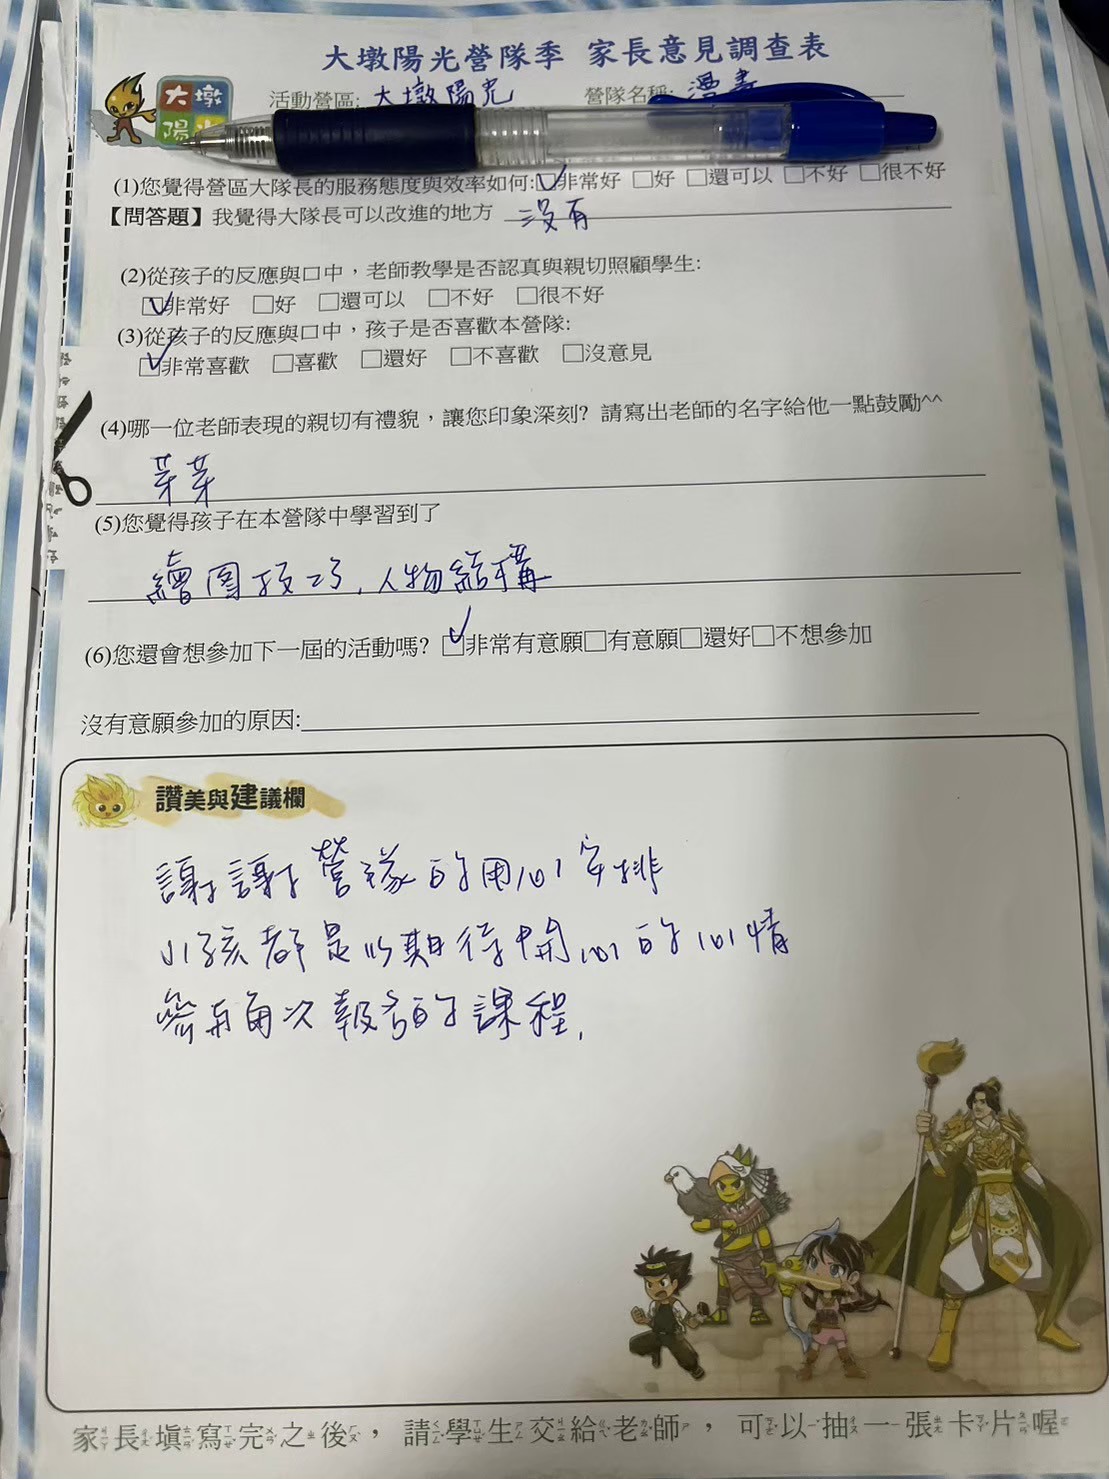 大墩陽光營隊季 家長意見調查表
大墩
陽
活動營區: 大墩陽光 營隊名稱: 漫畫
(1)您覺得營區大隊長的服務態度與效率如何:☑非常好 □好 □還可以 □不好 □很不好
【問答題】我覺得大隊長可以改進的地方 沒有
(2)從孩子的反應與口中，老師教學是否認真與親切照顧學生:
☑非常好 □好 □還可以 □不好 □很不好
(3)從孩子的反應與口中，孩子是否喜歡本營隊:
☑非常喜歡 □喜歡 □還好 □不喜歡 □沒意見
(4)哪一位老師表現的親切有禮貌，讓您印象深刻? 請寫出老師的名字給他一點鼓勵^^
芽芽
(5)您覺得孩子在本營隊中學習到了
繪圖技巧,人物結構
(6)您還會想參加下一屆的活動嗎? ☑非常有意願□有意願□還好□不想參加
沒有意願參加的原因:
讚美與建議欄
謝謝營隊的用心安排
小孩都是以期待開心的心情
參与每次報名的課程.
家長填寫完之後，請學生交給老師，可以抽一張卡片喔